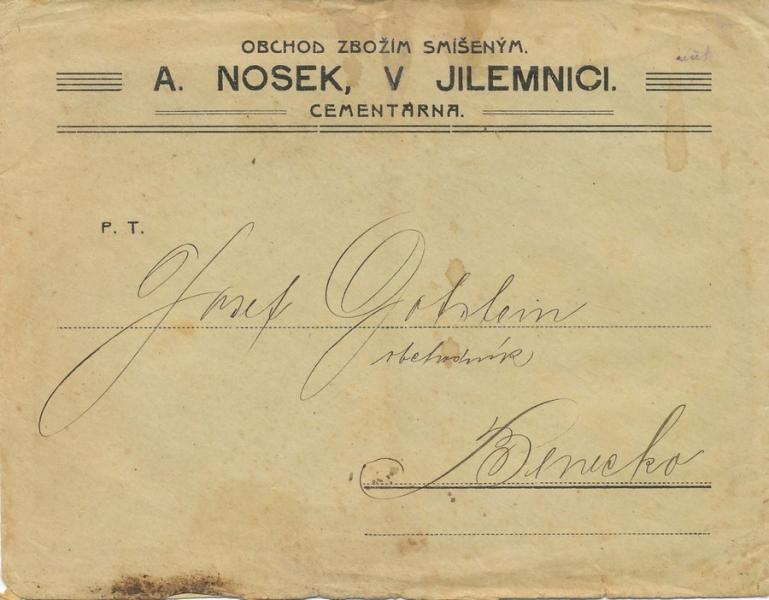 OBCHOD ZBOŽÍM SMÍŠENÝM.
A. NOSEK, V JILEMNICI.
CEMENTÁRNA.
P. T.
Josef Gotstein
obchodník
Benecko